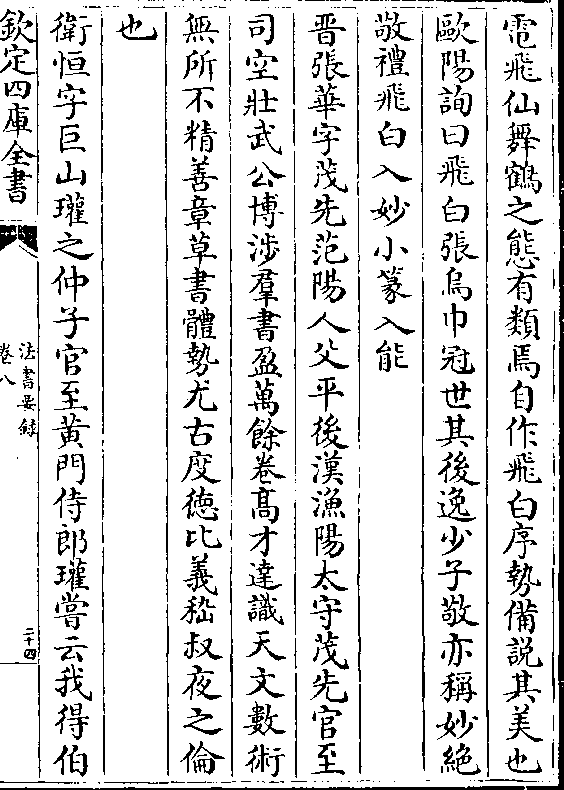 電飛仙舞鶴之態有類焉自作飛白序勢備説其美也
歐陽詢曰飛白張烏巾冠世其後逸少子敬亦稱妙絶
敬禮飛白入妙小篆入能
晋張華字茂先范陽人父平後漢漁陽太守茂先官至
司空壯武公博涉羣書盈萬餘卷髙才達識天文數術
無所不精善章草書體勢尤古度徳比義嵇叔夜之倫
也
衛恒字巨山瓘之仲子官至黄門侍郎瓘嘗云我得伯
欽定四庫全書
法書要録
卷八
二十四